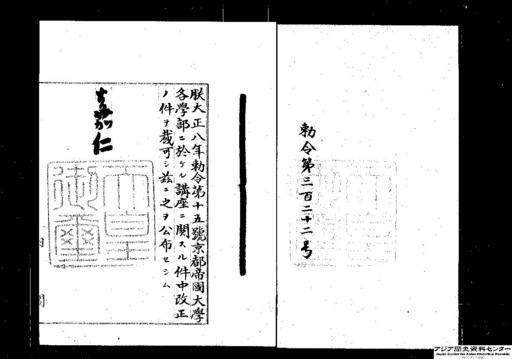 勅令第三百二十二号
朕大正八年勅令第十五號京都帝國大學
各學部ニ於ケル講座ニ關スル件中改正
ノ件ヲ裁可シ茲ニ之ヲ公布セシム
嘉仁
天皇
御璽
アジア歴史資料センター
Japan Center for Asian Historical Records